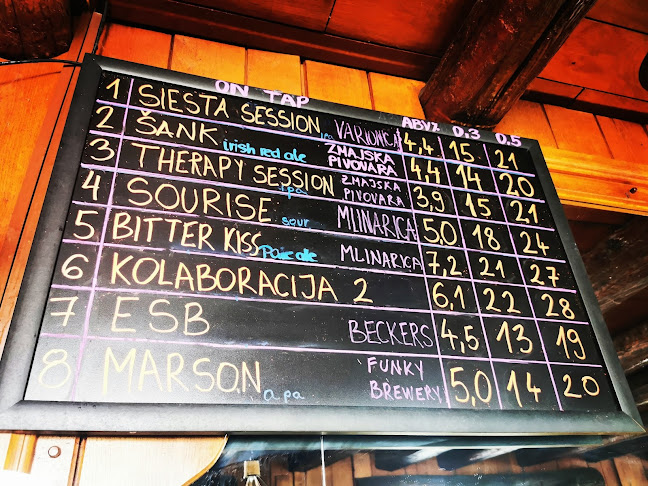 ON TAP ABV% 0.3 0.5
1 SIESTA SESSION ipa VARIONICA 4,4 15 21
2 ŠANK irish red ale ZMAJSKA PIVOVARA 4,4 14 20
3 THERAPY SESSION ipa ZMAJSKA PIVOVARA 3,9 15 21
4 SOURISE sour MLINARICA 5,0 18 24
5 BITTER KISS Pale ale MLINARICA 7,2 21 27
6 KOLABORACIJA 2 6,1 22 28
7 ESB BECKERS 4,5 13 19
8 MARSON apa FUNKY BREWERY 5,0 14 20